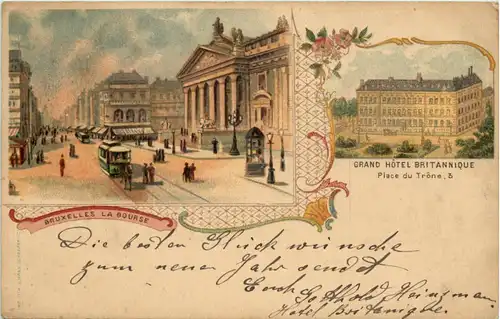 GRAND HÔTEL BRITANNIQUE
Place du Trône, 3
BRUXELLES LA BOURSE
Die besten Glückwunsche
zum neuen Jahr sendet
Euch Gotthold
Hotel Britanique.